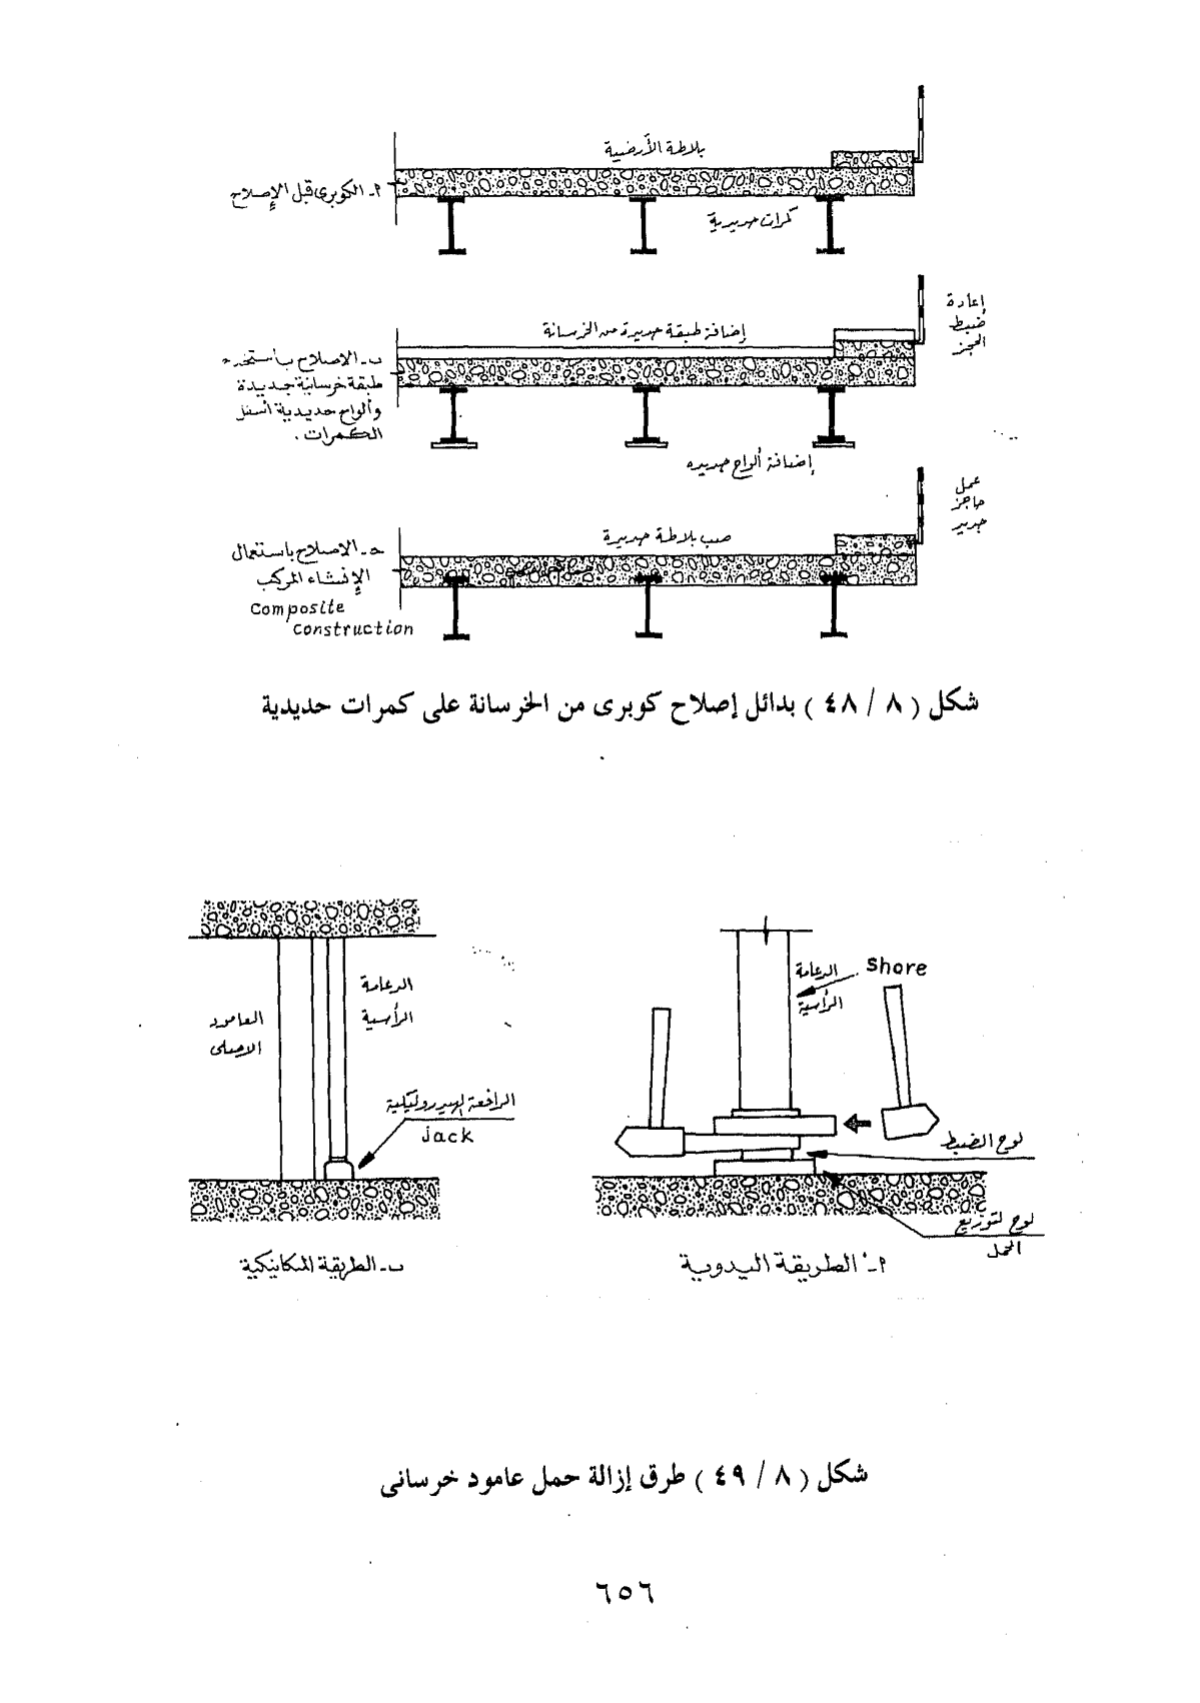 بلاطة الأرضية
أ- الكوبرى قبل الإصلاح
كمرات حديدية
إعادة
ضبط
الحجز
إضافة طبقة جديدة من الخرسانة
ب- الاصلاح باستخد
طبقة خرسانية جديدة
وألواح حديدية أسفل
الكمرات .
إضافة ألواح جديده
عمل
حاجز
جديد
صب بلاطة جديدة
حـ- الاصلاح باستعمال
الإنشاء المركب
Composite
construction
شكل ( ٨ / ٤٨ ) بدائل إصلاح كوبرى من الخرسانة على كمرات حديدية
الدعامة
الرأسية
shore
الدعامة
الرأسية
العامود
الاصلى
الرافعة الهيدروليكية
jack
لوح الضبط
لوح لتوزيع
الحمل
أ- الطريقة اليدوية
ب- الطريقة المكانيكية
شكل ( ٨ / ٤٩ ) طرق إزالة حمل عامود خرسانى
٦٥٦